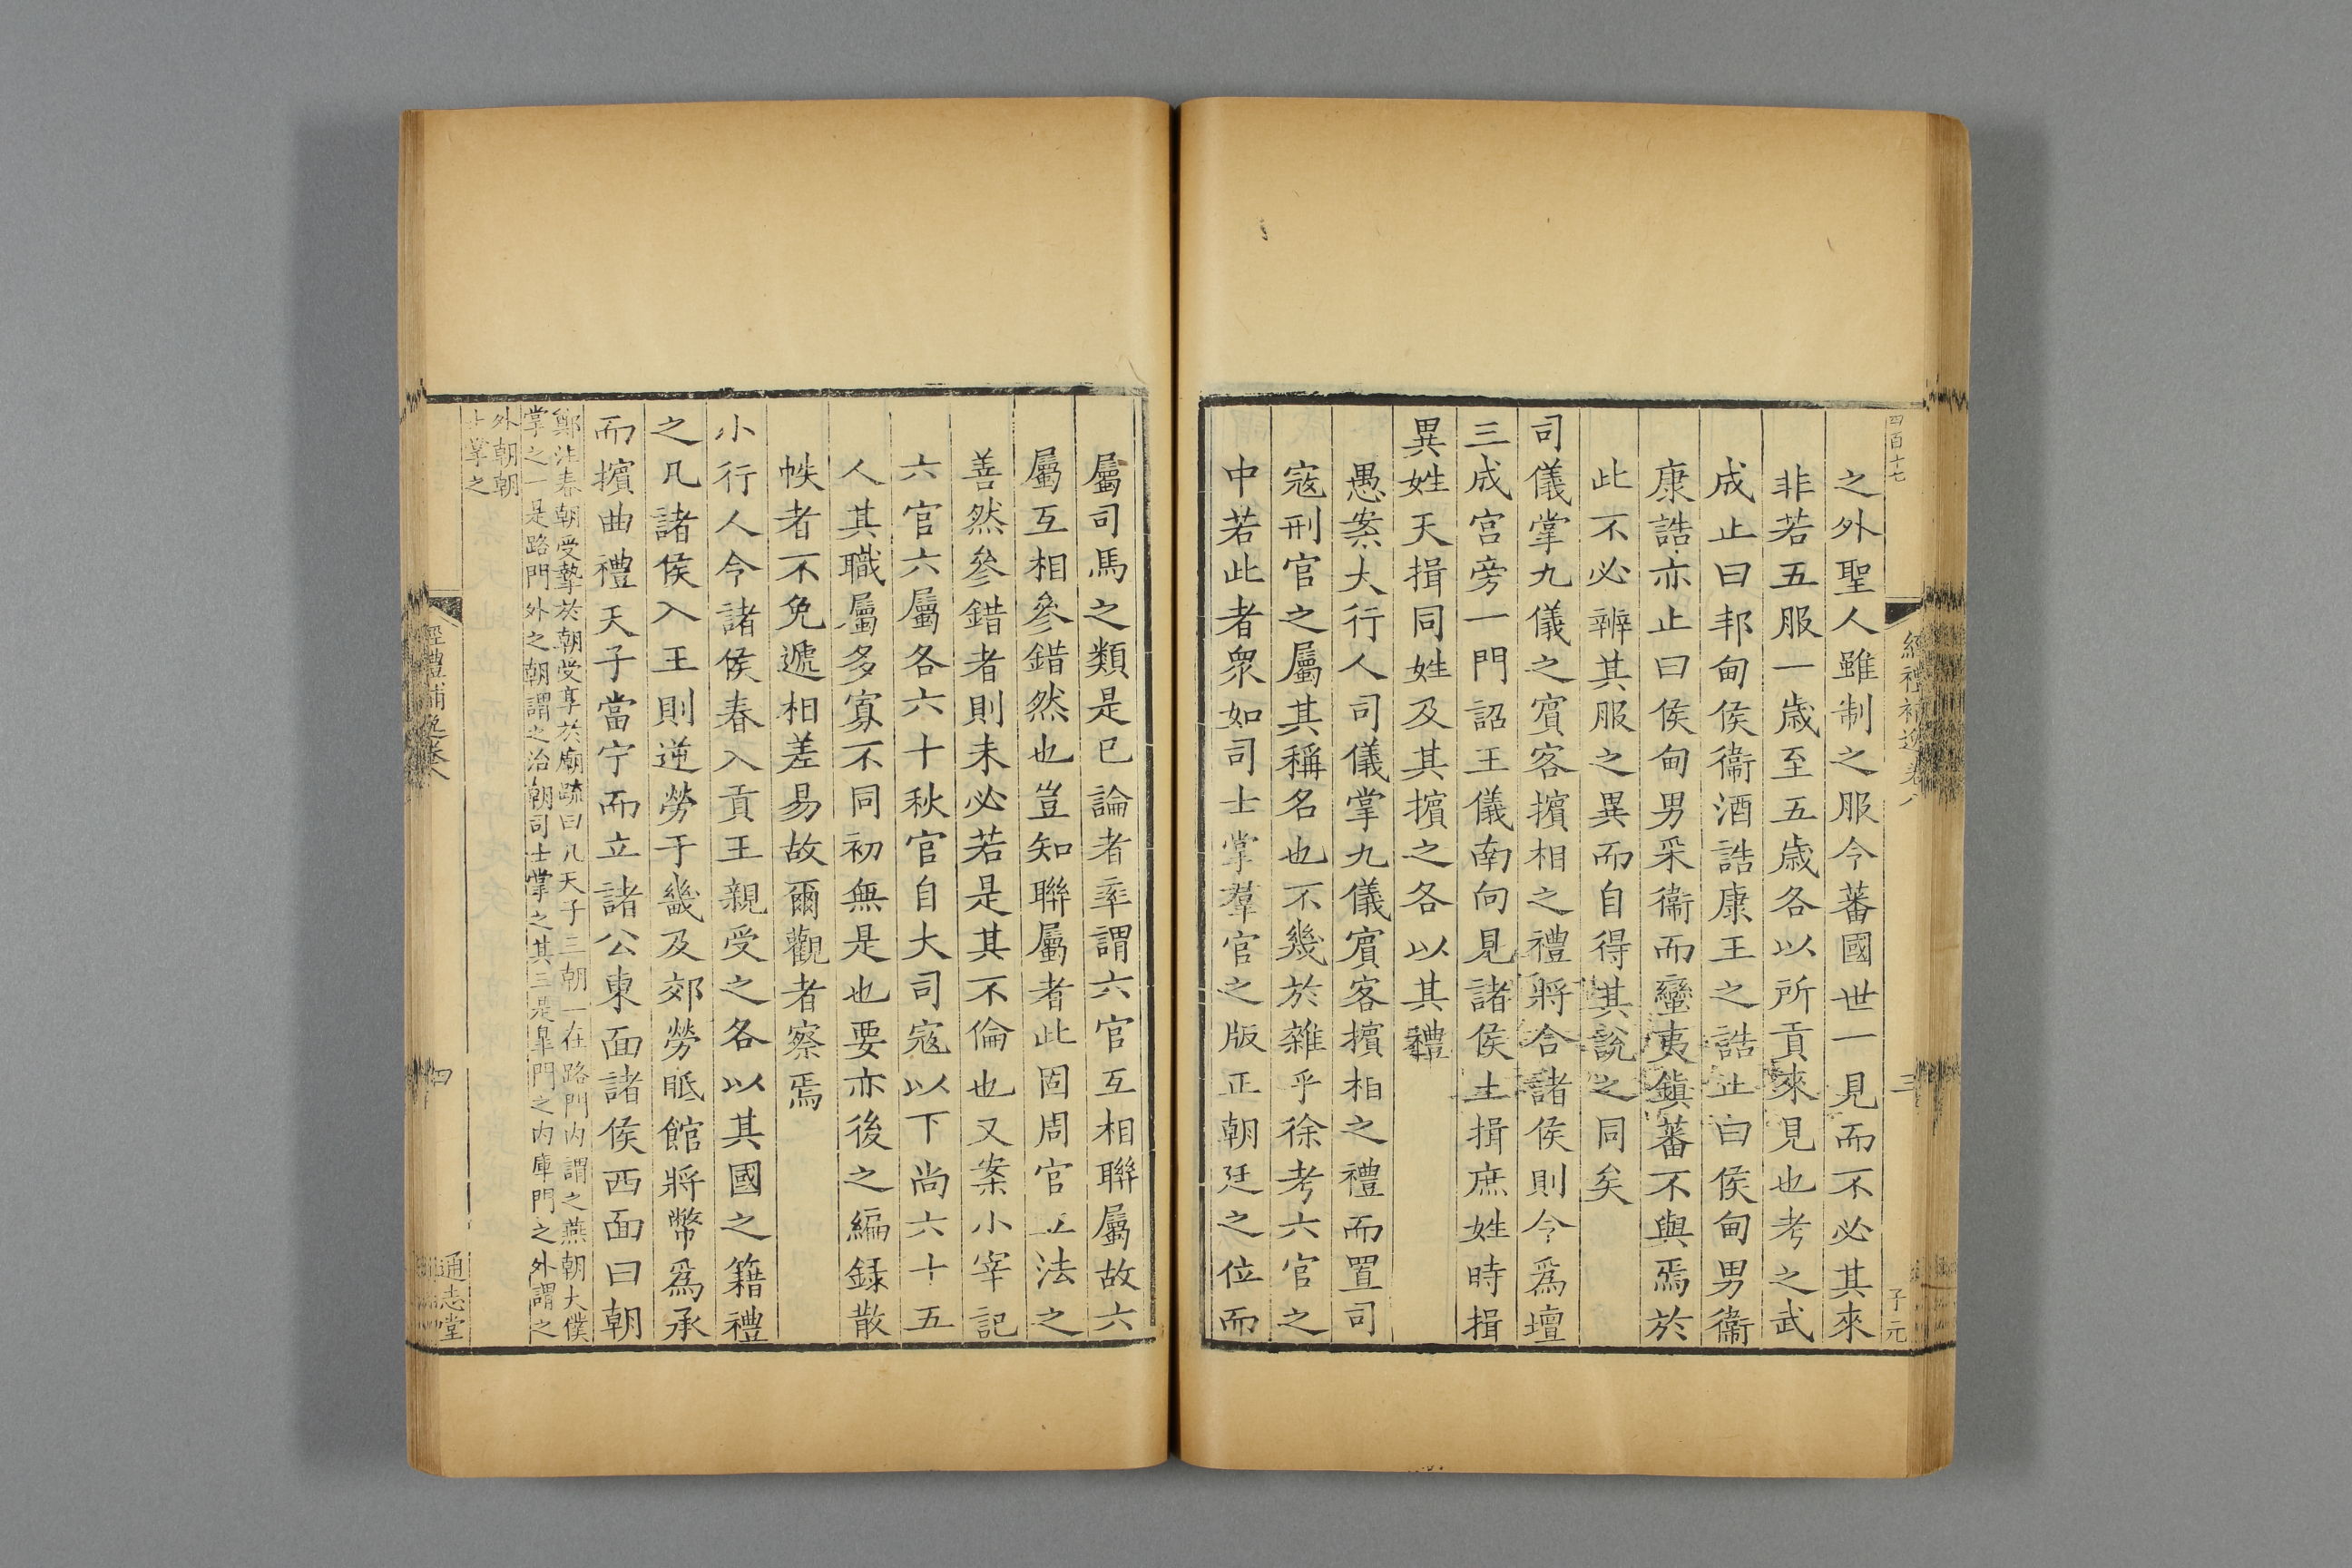 四百十七
經禮補逸卷八
三
子元
之外聖人雖制之服今蕃國世一見而不必其來
非若五服一歲至五歲各以所貢來見也考之武
成止曰邦甸侯衞酒誥康王之誥止曰侯甸男衞
康誥亦止曰侯甸男采衞而蠻夷鎮蕃不與焉於
此不必辨其服之異而自得其說之同矣
司儀掌九儀之賓客擯相之禮將合諸侯則令爲壇
三成宮旁一門詔王儀南向見諸侯土揖庶姓時揖
異姓天揖同姓及其擯之各以其禮
愚案大行人司儀掌九儀賓客擯相之禮而置司
寇刑官之屬其稱名也不幾於雜乎徐考六官之
中若此者衆如司士掌羣官之版正朝廷之位而
屬司馬之類是已論者率謂六官互相聯屬故六
屬互相參錯然也豈知聯屬者此固周官立法之
善然參錯者則未必若是其不倫也又案小宰記
六官六屬各六十秋官自大司寇以下尚六十五
人其職屬多寡不同初無是也要亦後之編録散
帙者不免遞相差易故爾觀者察焉
小行人令諸侯春入貢王親受之各以其國之籍禮
之凡諸侯入王則逆勞于畿及郊勞眂館將幣爲承
而擯曲禮天子當宁而立諸公東面諸侯西面曰朝
鄭注春朝受摯於朝受享於廟疏曰凡天子三朝一在路門内謂之燕朝大僕
掌之一是路門外之朝謂之治朝司士掌之其三是臯門之内庫門之外謂之
外朝朝
士掌之
經禮補逸卷八
四
通志堂